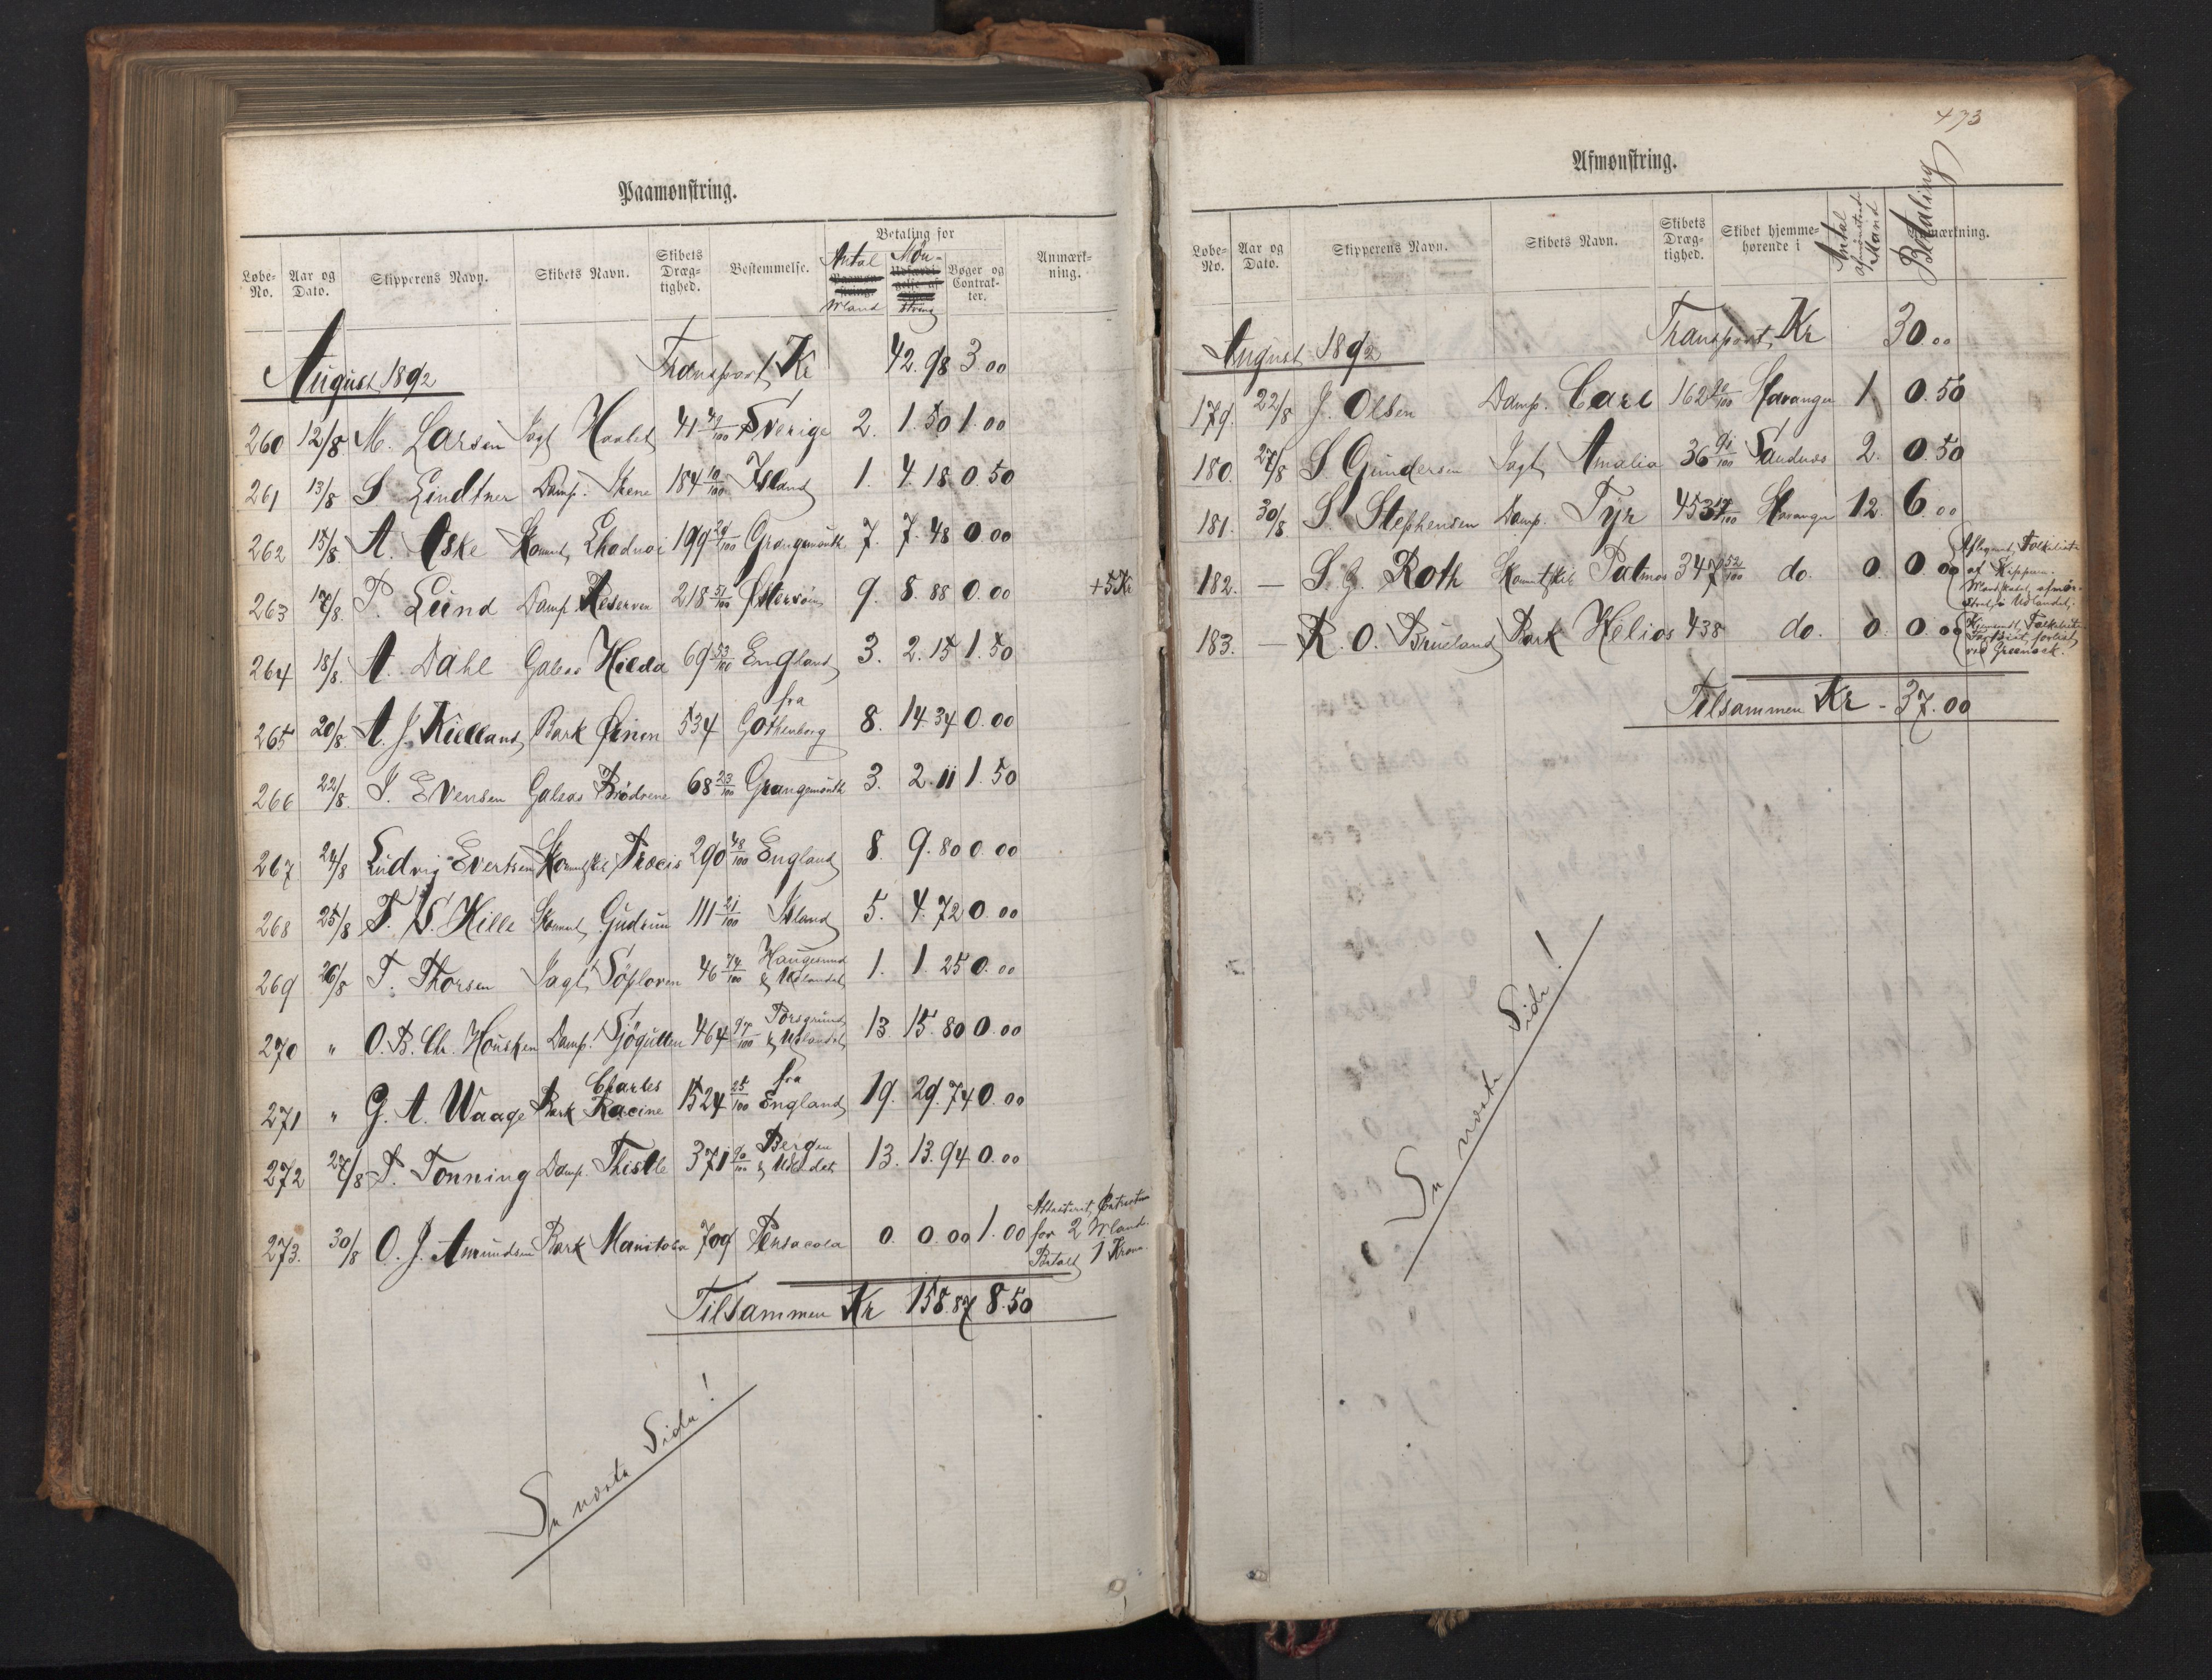 Paamønstring.
Løbe-No. Aar og Dato. Skipperens Navn. Skibets Navn. Skibets Dræg-tighed. Bestemmelse. Betaling for Antal Mand Møn-string Bøger og Contrak-ter. Anmærk-ning.
August 1892 Transport, Kr 42.98 3 00
260 12/8 M. Larsen Jagt 41 49/100 Sverige 2. 1.50 1.00
261 13/8 S Lindtner Damp. Skene 184 10/100 Island 1. 4.18 0.50
262 15/8 A. Aske Skonnt, 199 29/100 Grangemouth 7. 7.48 0.00
263 17/8 P. Lund Damp. Reserven 218 51/100 Østersöen 9. 8.88 0.00 +5Kr
264 18/8 A. Dahl Galeas Hilda 69 53/100 England 3. 2.15 1.50
265 20/8 A. J. Kielland Bark 534 fra Gothenborg 8. 14 34 0.00
266 22/8 J. Evensen Galeas Brödrene 68 23/100 Grangemouth 3. 2.11 1.50
267 24/8 Ludvig Evertsen 290 48/100 England 8. 9.80 0.00
268 25/8 T. S. Hille Skonnt, Gudrun 111 21/100 Island 5. 4.72 0.00
269 26/8 T. Thorsen Jagt Söploven 46 74/100 Haugesund & Udlandet 1. 1.25 0.00
270 " O. B. Ch. Housken Damp. Sjögutten 464 97/100 Porsgrund & Udlandet 13 15.80 0.00
271 " G. A. Waage Bark Charles Racine 1524 25/100 fra England 19. 29.74 0.00
272 27/8 P. Tonning Damp. Thistle 371 90/100 Bergen & Udlandet 13. 13.94 0.00
273. 30/8 O. J. Amundsen Bark Manitoba 709 Pensacola 0. 0.00 1.00 for 2 Mand. Betalt 1 Krone.
Tilsammen Kr 158.87 8.50
Se næste Side!
473
Afmønstring.
Løbe-No. Aar og Dato. Skipperens Navn. Skibets Navn. Skibets Dræg-tighed. Skibet hjemme-hørende i Antal afmönstrede Mand Betaling Anmærkning.
August 1892 Transport, Kr 30.00
179. 22/8 J. Olsen Damp. Carl 162 90/100 Stavanger 1 0.50
180. 27/8 S. Gundersen Jagt, Amalia 36 91/100 Sandnes 2. 0.50
181. 30/8 S. Stephensen Damp. Tyr 453 17/100 Stavanger 12. 6.00
182. — S. G. Roth Skonnt.skib Patmos 347 52/100 do. 0. 0.00 af Skipperen. Mandskabet afmön-stret i Udlandet.
183. — R. O. Brueland Bark Helios 438 do. 0. 0.00 forlist, ved Greenock.
Tilsammen Kr - 37.00
Se næste Side!